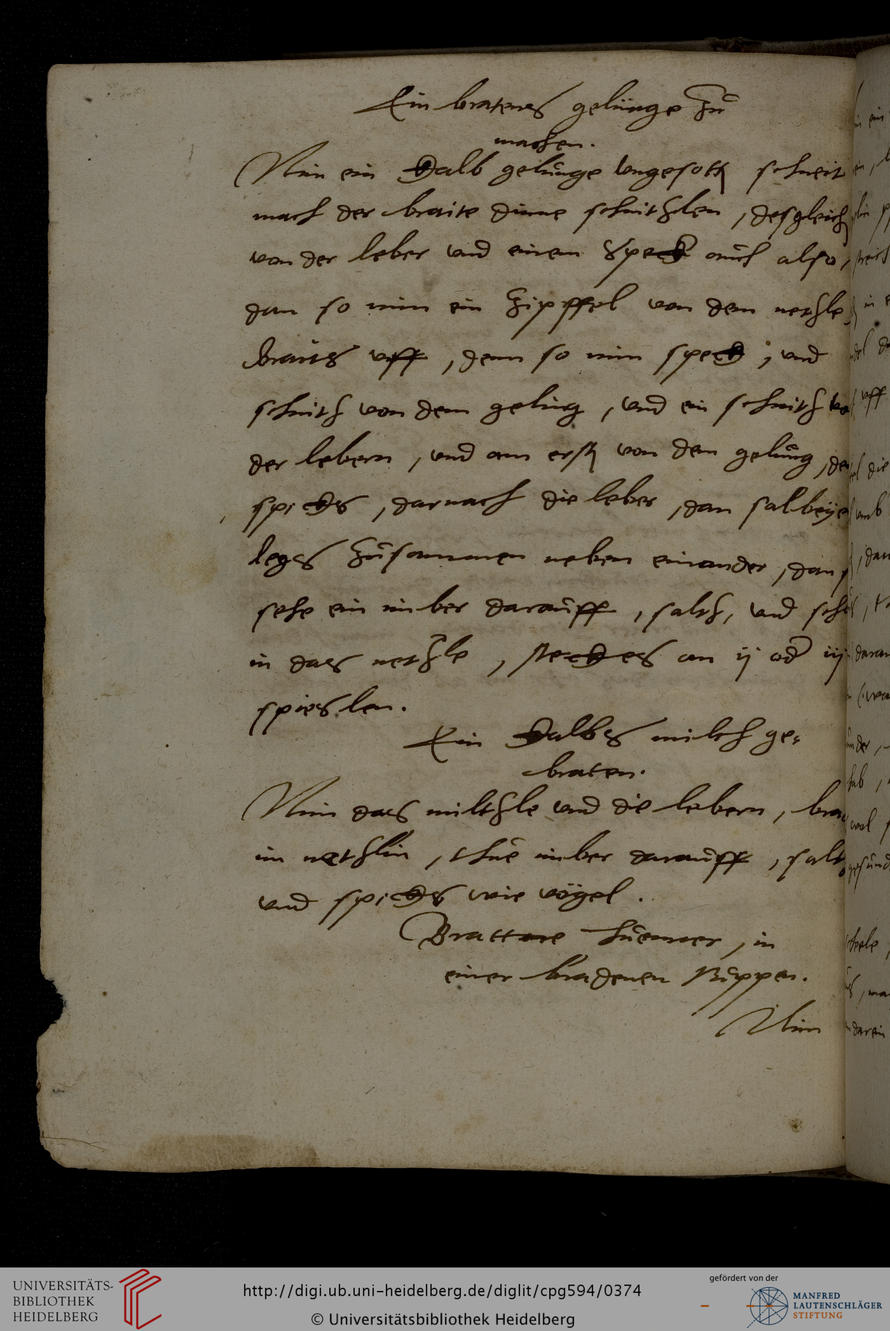 Ein bratens gelünge zu
machen.
Nim ein kalb gelünge ungesott schneit
nach der braite dinne schnitzlen, desgleich
von der leber und einen speck auch also,
dan so nim ein zipffel von dem netzle
braits uff, denn so nim speck, und
schnitz von dem geling, und ein schnitz
der lebern, und am erst von dem gelüng,
spicks, darnach die leber, dan salbeye
legs zusammen neben einander, dan
sehe ein imber darauff, saltz, und
in das netzle, steckes an ij oder iij
spieslen.
Ein kalbs milch ge-
braten.
Nim das miltzle und die lebern,
im netzlin, thue imber darauff, saltz
und spicks wie vögel.
Brattene huener, in
einer bradenen suppen.
Nim
UNIVERSITÄTS-
BIBLIOTHEK
HEIDELBERG
http://digi.ub.uni-heidelberg.de/diglit/cpg594/0374
© Universitätsbibliothek Heidelberg
gefördert von der
MANFRED
LAUTENSCHLÄGER
STIFTUNG